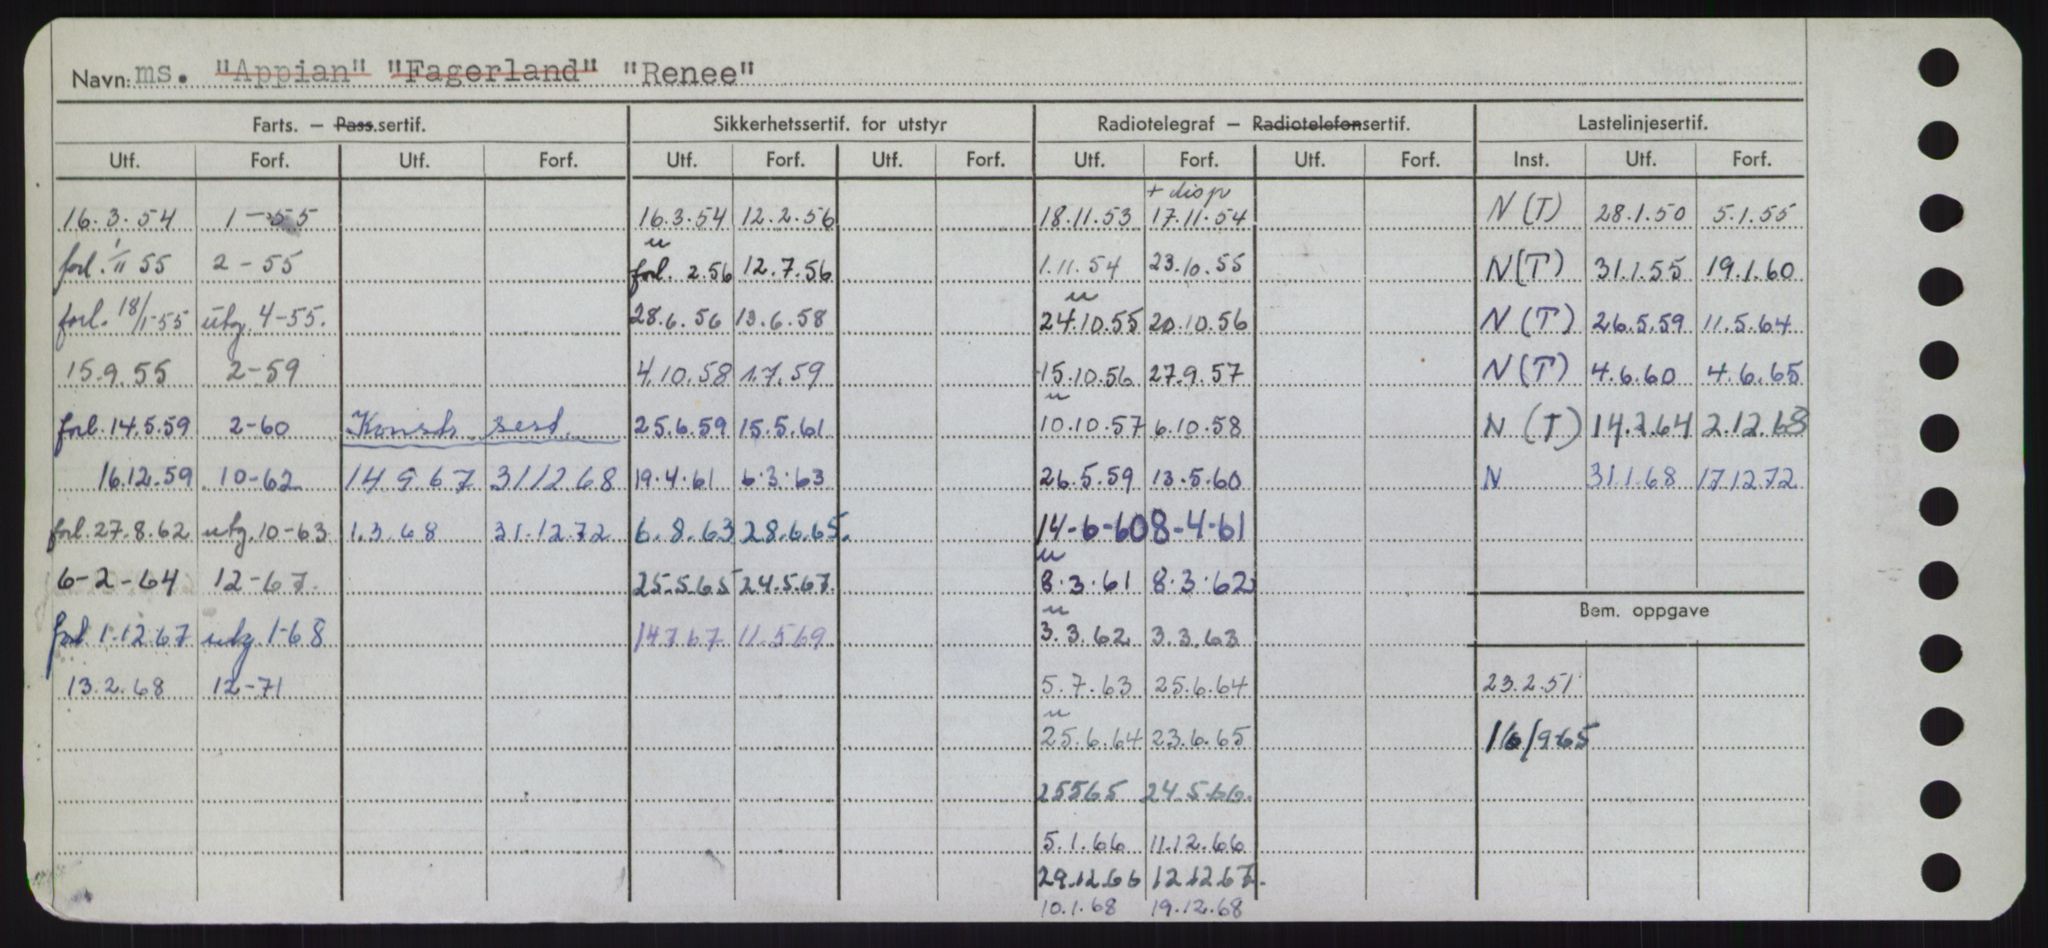 Navn: ms. "Appian" "Fagerland" "Renee"
Farts. — Pass.sertif. Sikkerhetssertif. for utstyr Radiotelegraf — Radiotelefonsertif. Lastelinjesertif.
Utf. Forf. Utf. Forf. Utf. Forf. Utf. Forf. Utf. Forf. Utf. Forf. Inst. Utf. Forf.
+ disp
16.3.54 1-55 16.3.54 12.2.56 18.11.53 17.11.54 N(T) 28.1.50 5.1.55
u
forl. 1/11 55 2-55 forl. 2.56 12.7.56 1.11.54 23.10.55 N(T) 31.1.55 19.1.60
u
forl. 18/1-55 utg. 4-55. 28.6.56 13.6.58 24.10.55 20.10.56 N(T) 26.5.59 11.5.64
15.9.55 2-59 4.10.58 1.7.59 15.10.56 27.9.57 N(T) 4.6.60 4.6.65
u
forl. 14.5.59 2-60 Konstr. sert. 25.6.59 15.5.61 10.10.57 6.10.58 N (T) 14.2.64 2.12.68
16.12.59 10-62 14 9 67 31 12 68 19.4.61 6.3.63 26.5.59 13.5.60 N 31.1.68 17.12.72
forl. 27.8.62 utg. 10-63 1.3.68 31.12.72 6.8.63 28.6.65. 14-6-60 8-4-61
u
6-2-64 12-67. 25.5.65 24.5.67. 8.3.61 8.3.62
Bem. oppgave
u
forl. 1.12.67 utg 1-68 14.7.67 11.5.69 3.3.62 3.3.63
13.2.68 12-71 5.7.63 25.6.64 23.2.51
u
25.6.64 23.6.65 16/9-65
25565 24.5.66.
5.1.66 11.12.66
29.12.66 12.12.67.
10.1.68 19.12.68